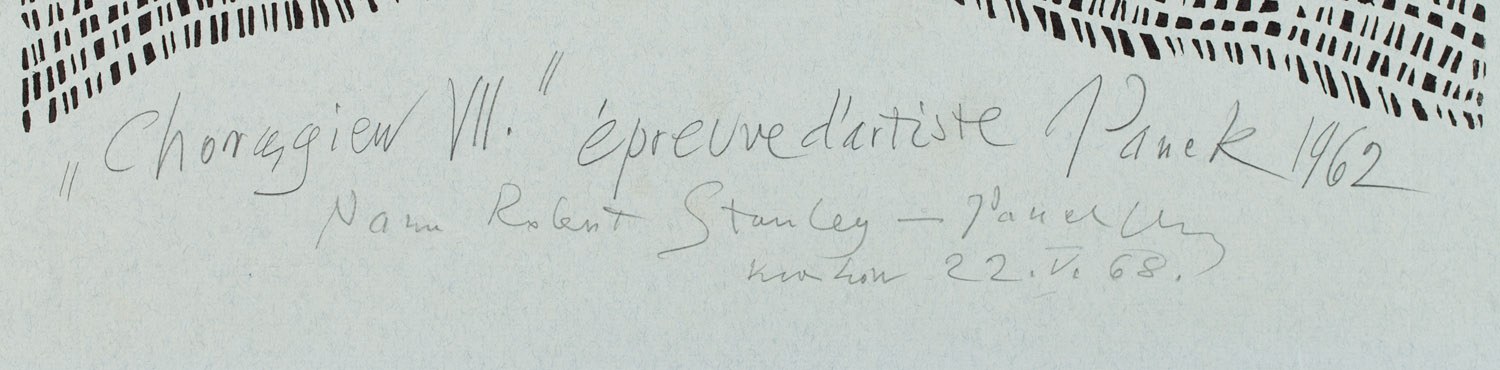 „Chorągiew VII." épreuve d'artiste Panek 1962
Robert Stanley – Panek
Kraków 22.V.68.